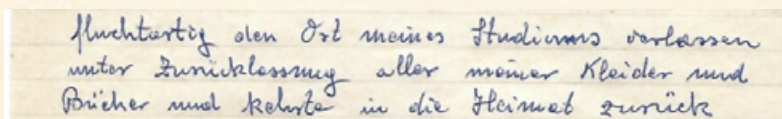 fluchtartig den Ort meines Studiums verlassen
unter Zurücklassung aller meiner Kleider und
Bücher und kehrte in die Heimat zurück